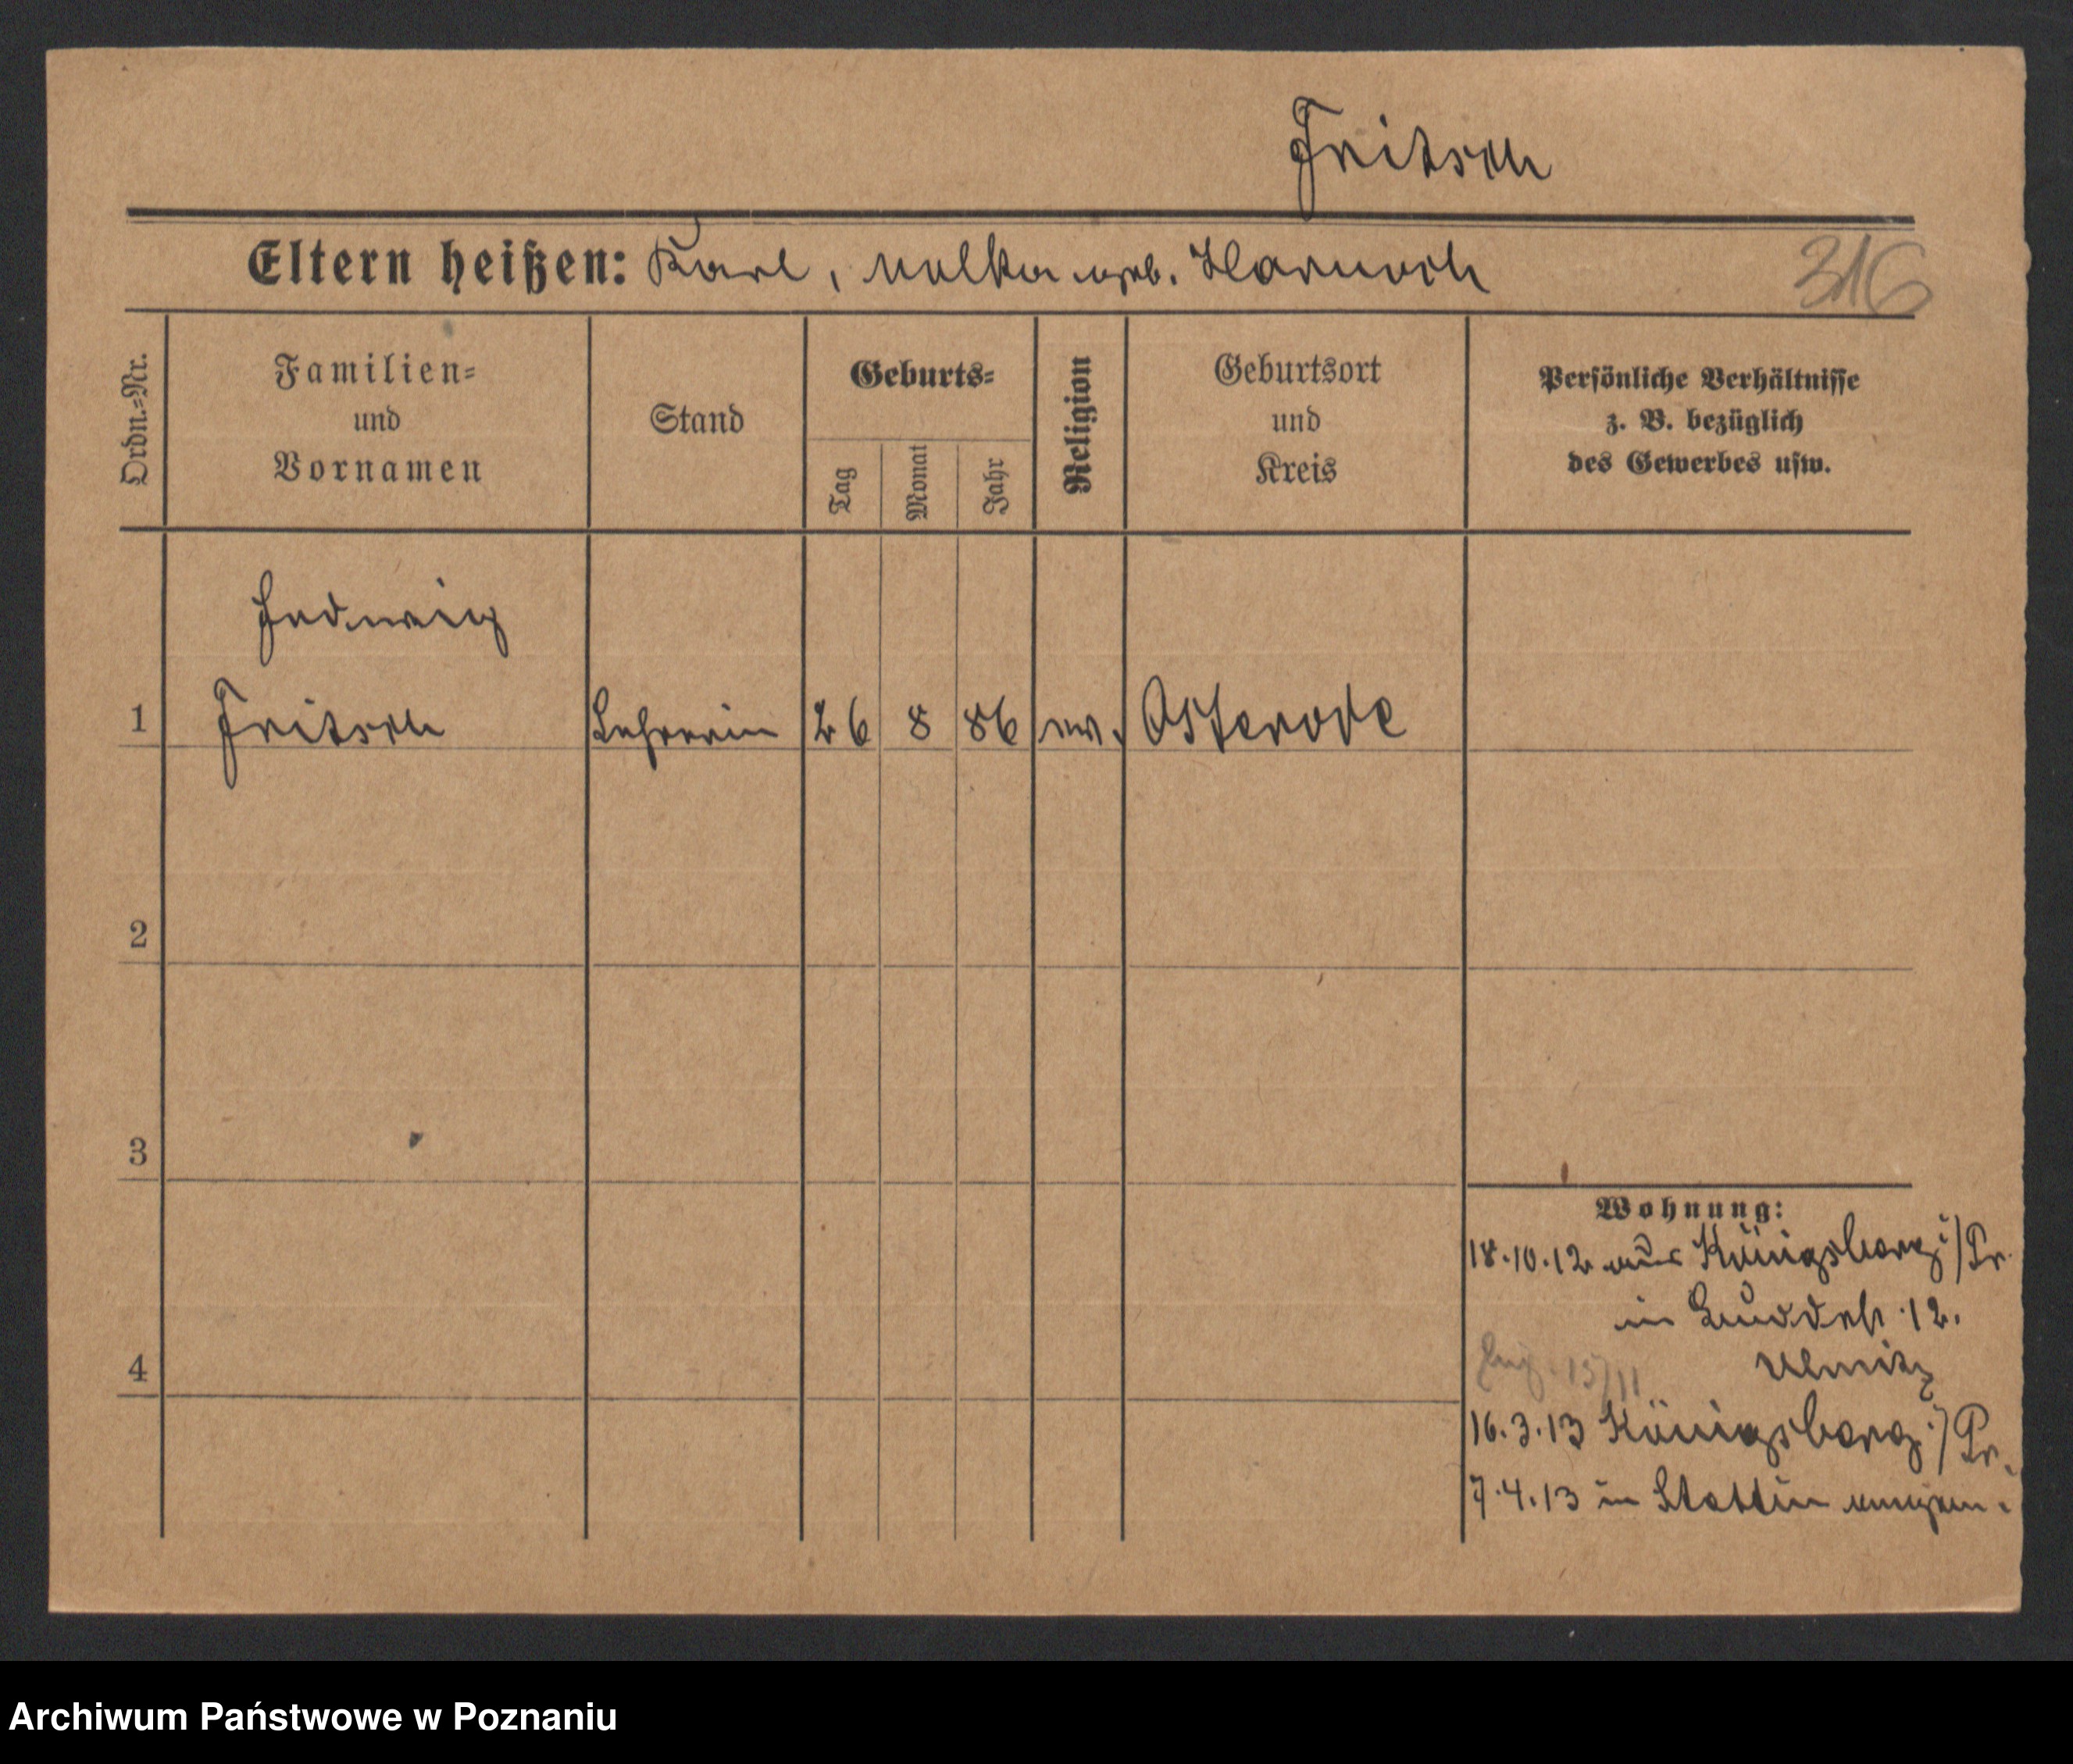 Fritsch
Eltern heißen: Karl, geb. Harnoch
316
Ordn.-Nr.
Familien-
und
Vornamen
Stand
Geburts-
Tag
Monat
Jahr
Religion
Geburtsort
und
Kreis
Persönliche Verhältnisse
z. B. bezüglich
des Gewerbes usw.
Hedwig
1 Fritsch Lehrerin 26 8 86 ev. Osterode
2
3
4
Wohnung:
18.10.12 aus Königsberg i/Pr.
in Buddestr. 12.
16.3.13 Königsberg i/Pr.
7.4.13 in Stettin angem.
Archiwum Państwowe w Poznaniu